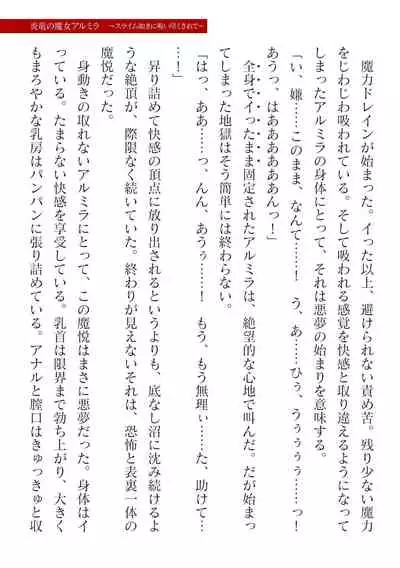 炎竜の魔女アルミラ　～スライム如きに吸い尽くされて～
　魔力ドレインが始まった。イった以上、避けられない責め苦。残り少ない魔力
をじわじわ吸われている。そして吸われる感覚を快感と取り違えるようになって
しまったアルミラの身体にとって、それは悪夢の始まりを意味する。
「い、嫌……このまま、なんて……！　う、あ……ひぅ、うぅぅぅ……っ！
あうっ、はああああああんっ！」
　全身でイったまま固定されたアルミラは、絶望的な心地で叫んだ。だが始まっ
てしまった地獄はそう簡単には終わらない。
「はっ、ああ……っ、んん、あうぅ……！　もう、もう無理ぃ……た、助けて…
…！」
　昇り詰めて快感の頂点に放り出されるというよりも、底なし沼に沈み続けるよ
うな絶頂が、際限なく続いていた。終わりが見えないそれは、恐怖と表裏一体の
魔悦だった。
　身動きの取れないアルミラにとって、この魔悦はまさに悪夢だった。身体はイ
っている。たまらない快感を享受している。乳首は限界まで勃ち上がり、大きく
もまろやかな乳房はパンパンに張り詰めている。アナルと膣口はきゅっきゅと収